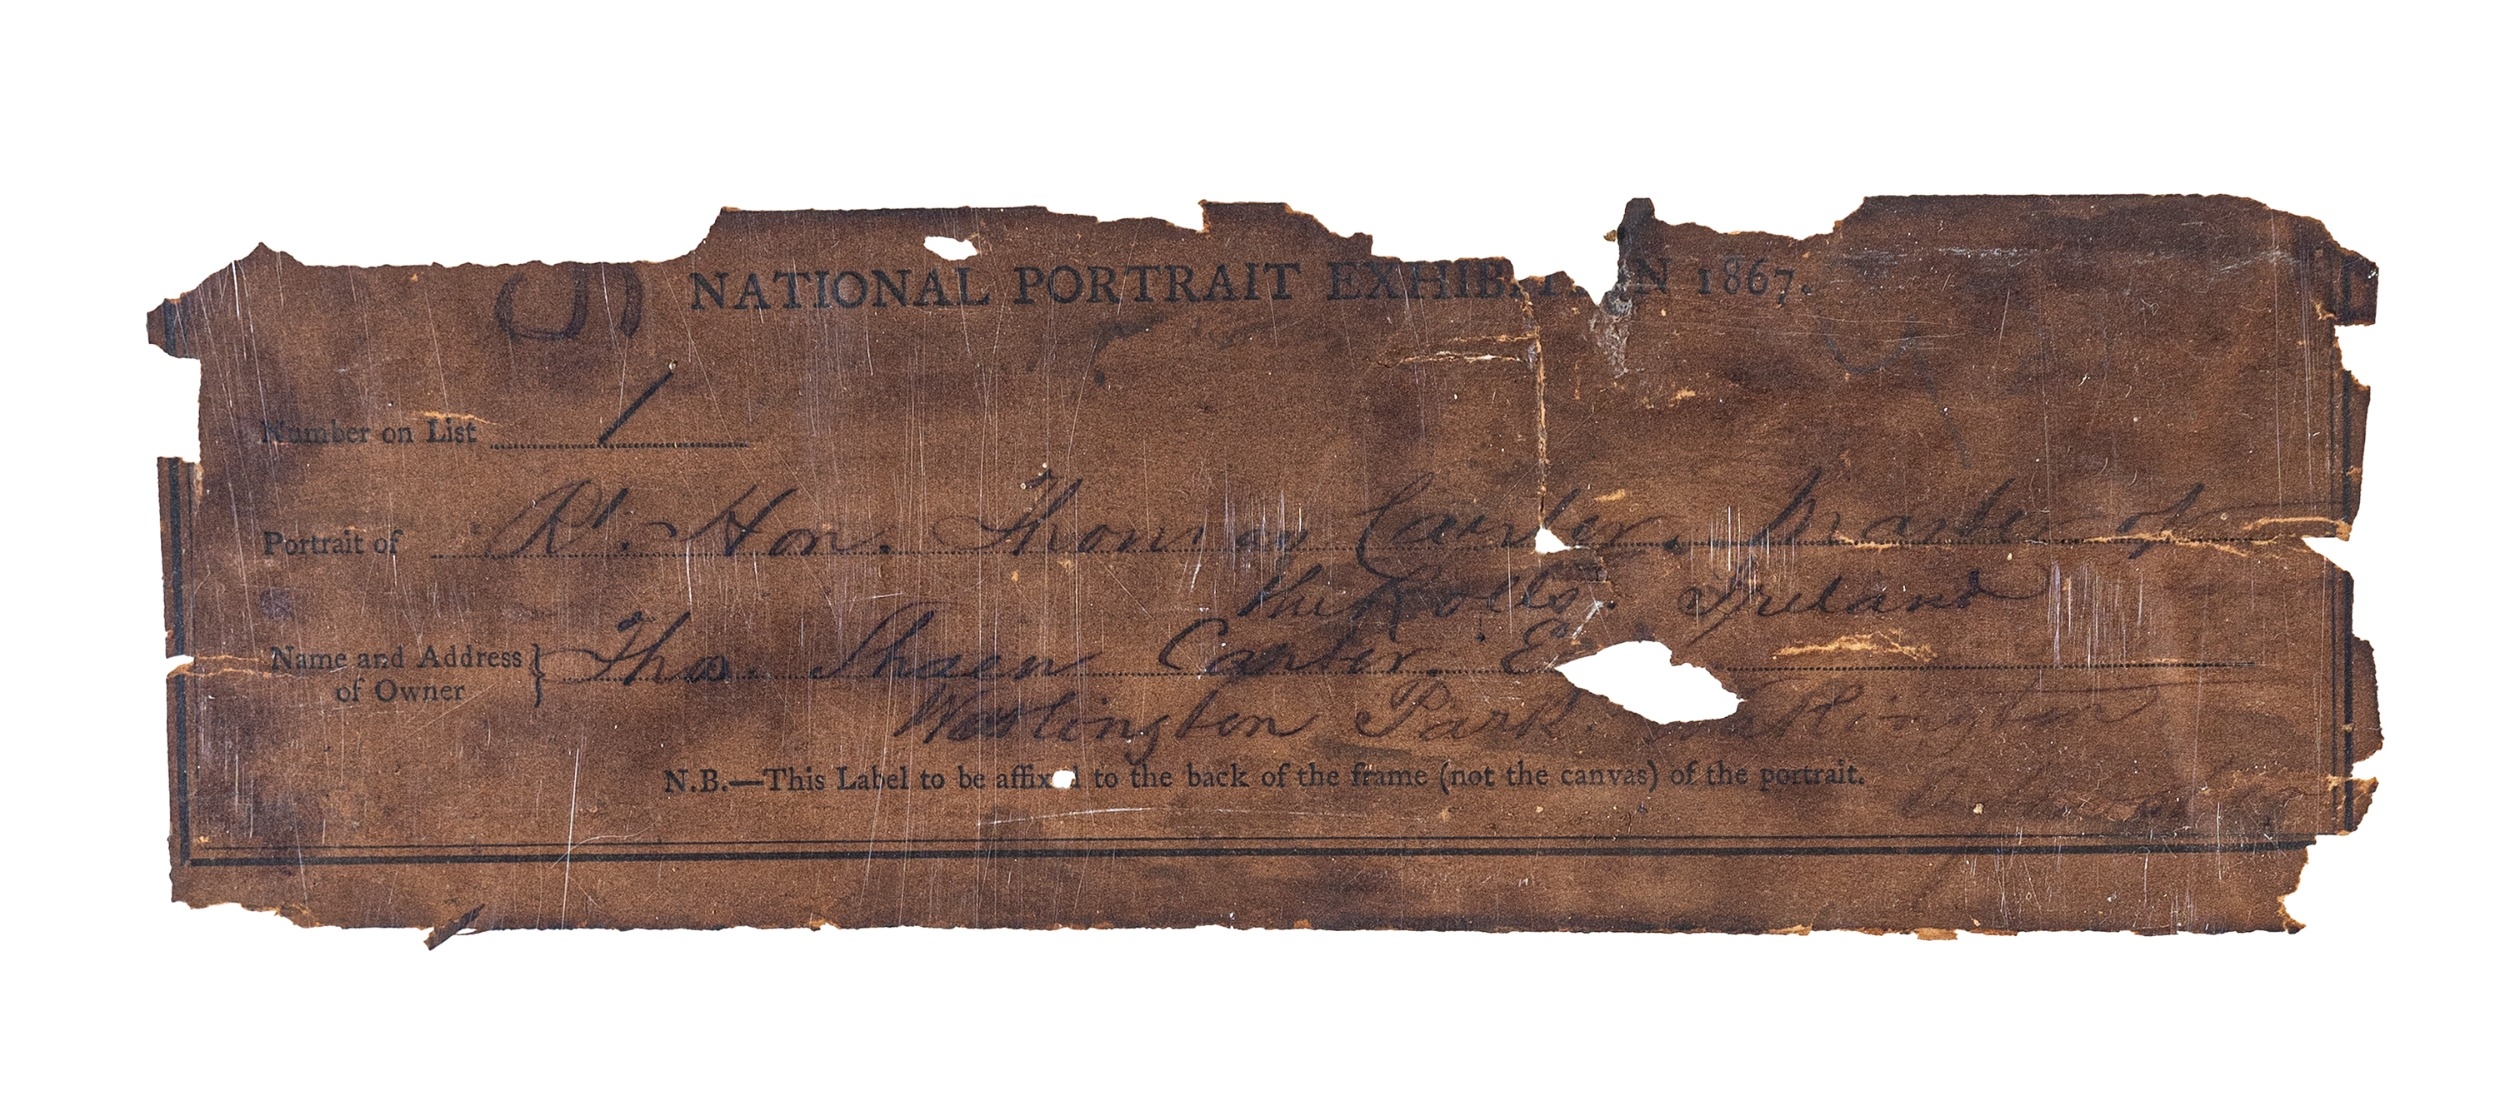 NATIONAL PORTRAIT EXHIBITION 1867.
Number on List 1
Portrait of Rt. Hon. Thomas Carter, Master of
the Rolls. Ireland
Name and Address of Owner } Thos. Shaen Carter. E
Watlington Park. Watlington
N.B.—This Label to be affixed to the back of the frame (not the canvas) of the portrait.